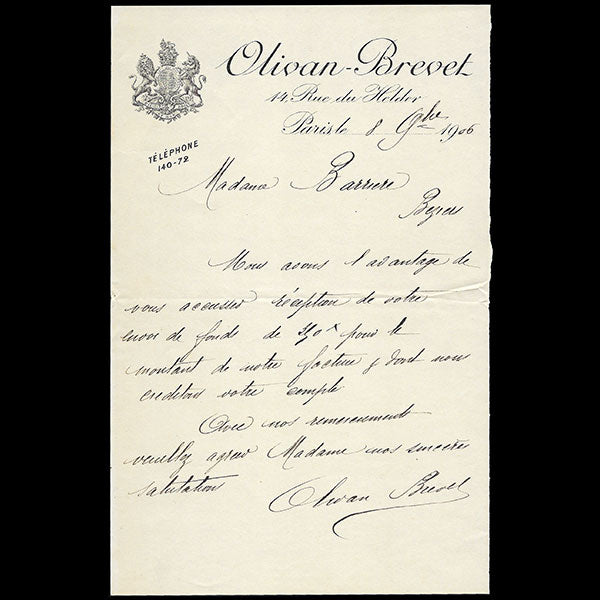 Olivan-Brevet
14, Rue du Helder
Paris le 8 9bre 1906
TÉLÉPHONE
140-72
Madame Barriere
Beziers
Nous avons l'avantage de
vous accusser réception de votre
envoi de fonds de pour le
montant de notre facture dont nous
creditons votre compte
Avec nos remerciements
veuillez agreer Madame nos sincères
salutations
Olivan Brevet